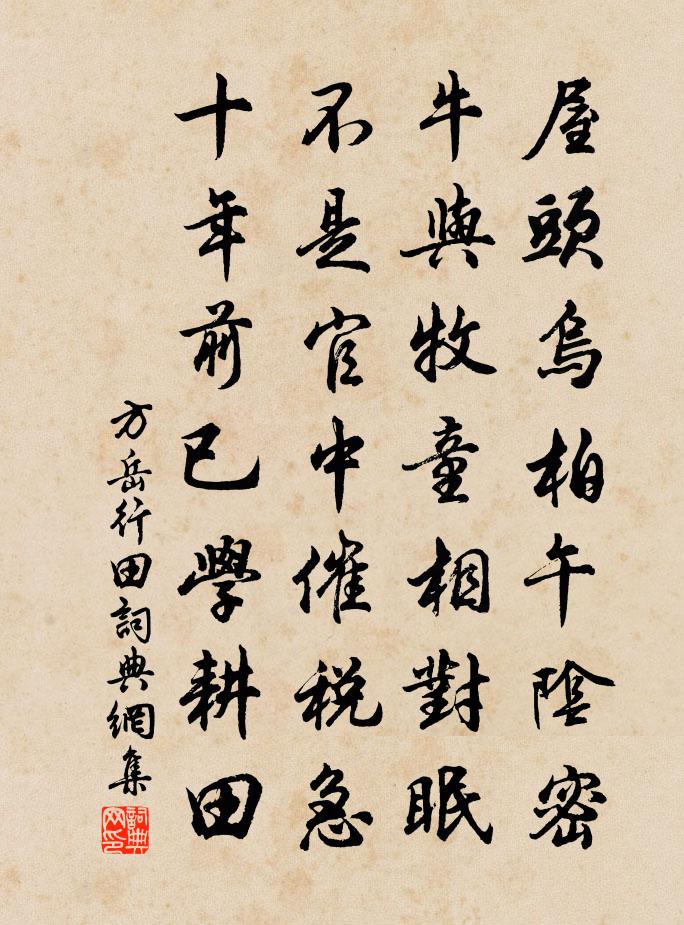 屋頭烏桕午陰密
牛與牧童相對眠
不是官中催税急
十年前已學耕田
方岳行田詞典網集
詞典网印